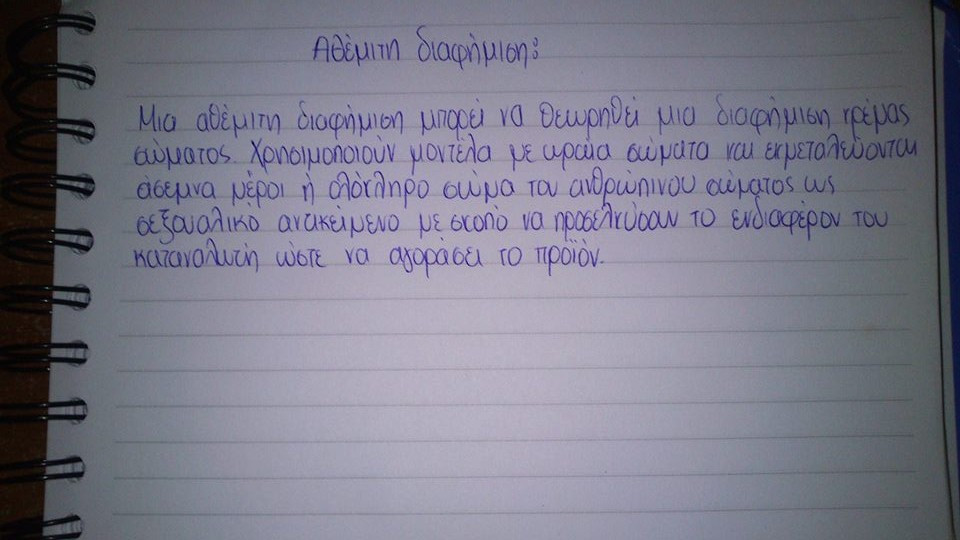 Αθέμιτη διαφήμιση:
Μια αθέμιτη διαφήμιση μπορεί να θεωρηθεί μια διαφήμιση κρέμας
σώματος. Χρησιμοποιούν μοντέλα με ωραία σώματα και εκμεταλεύονται
άσεμνα μέροι ή ολόκληρο σώμα του ανθρώπινου σώματος ως
σεξουαλικό αντικείμενο με σκοπό να προσελκύσουν το ενδιαφέρον του
καταναλωτή ώστε να αγοράσει το προϊόν.